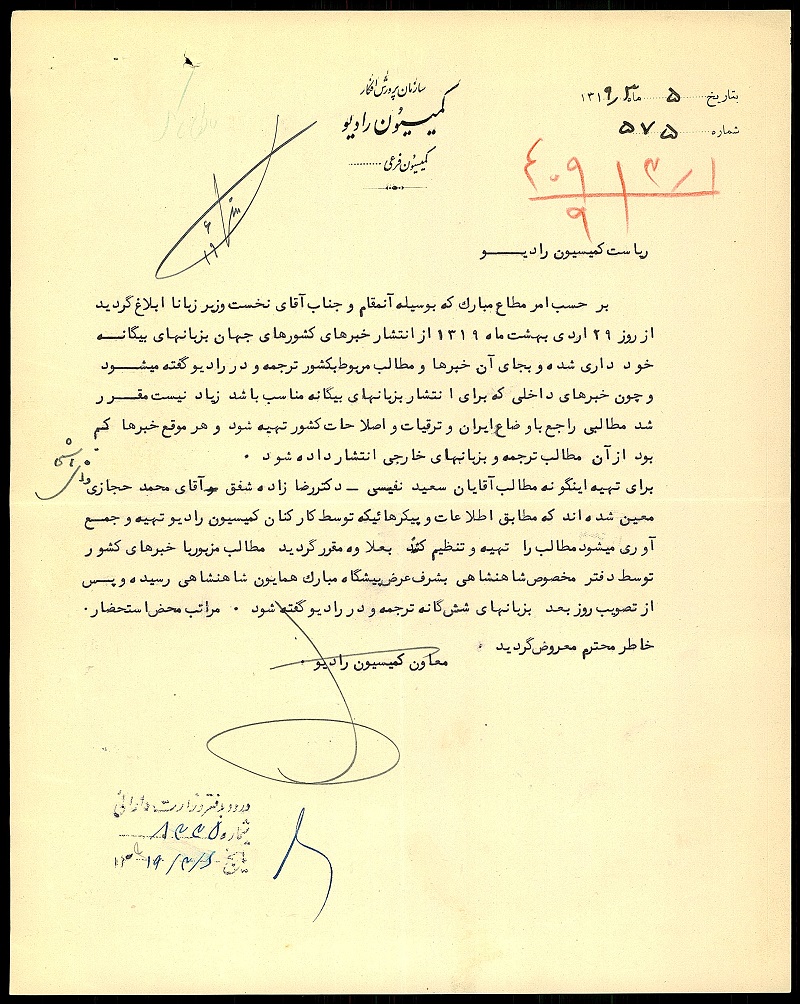 سازمان پرورش افکار
کمیسیون رادیو
کمیسیون فرعی ............
بتاریخ ۵ ماه ۳ ۱۳۱۹
شماره ۵۷۵
ریاست کمیسیون رادیـــو
بر حسب امر مطاع مبارك که بوسیله آنمقام و جناب آقای نخست وزیر زبانا ابلاغ گردید
از روز ۲۹ اردی بهشت ماه ۱۳۱۹ از انتشار خبرهای کشورهای جهان بزبانهای بیگانــه
خود داری شده و بجای آن خبرها و مطالب مربوط بکشور ترجمه و در رادیو گفته میشــود
و چون خبرهای داخلی که برای انتشار بزبانهای بیگانه مناسب باشد زیاد نیست مقــرر
شد مطالبی راجع باوضاع ایران و ترقیات و اصلاحات کشور تهیه شود و هر موقع خبرها کم
بود از آن مطالب ترجمه و بزبانهای خارجی انتشار داده شود ۰
برای تهیه اینگونه مطالب آقایان سعید نفیسی ــ دکتر رضا زاده شفق و آقای محمد حجازی
معین شده اند که مطابق اطلاعات و پیکرهائیکه توسط کارکنان کمیسیون رادیو تهیه و جمـع
آوری میشود مطالب را تهیه و تنظیم کنند بعلاوه مقرر گردید مطالب مزبور با خبرهای کشور
توسط دفتر مخصوص شاهنشاهی بشرف عرض پیشگاه مبارك همایون شاهنشاهی رسیده و پــس
از تصویب روز بعد بزبانهای شش گانه ترجمه و در رادیو گفته شود ۰ مراتب محض استحضار ۰
خاطر محترم معروض گردید ۰
معاون کمیسیون رادیو ۰
ورود بدفتر وزارت دارائی
شماره
تاریخ